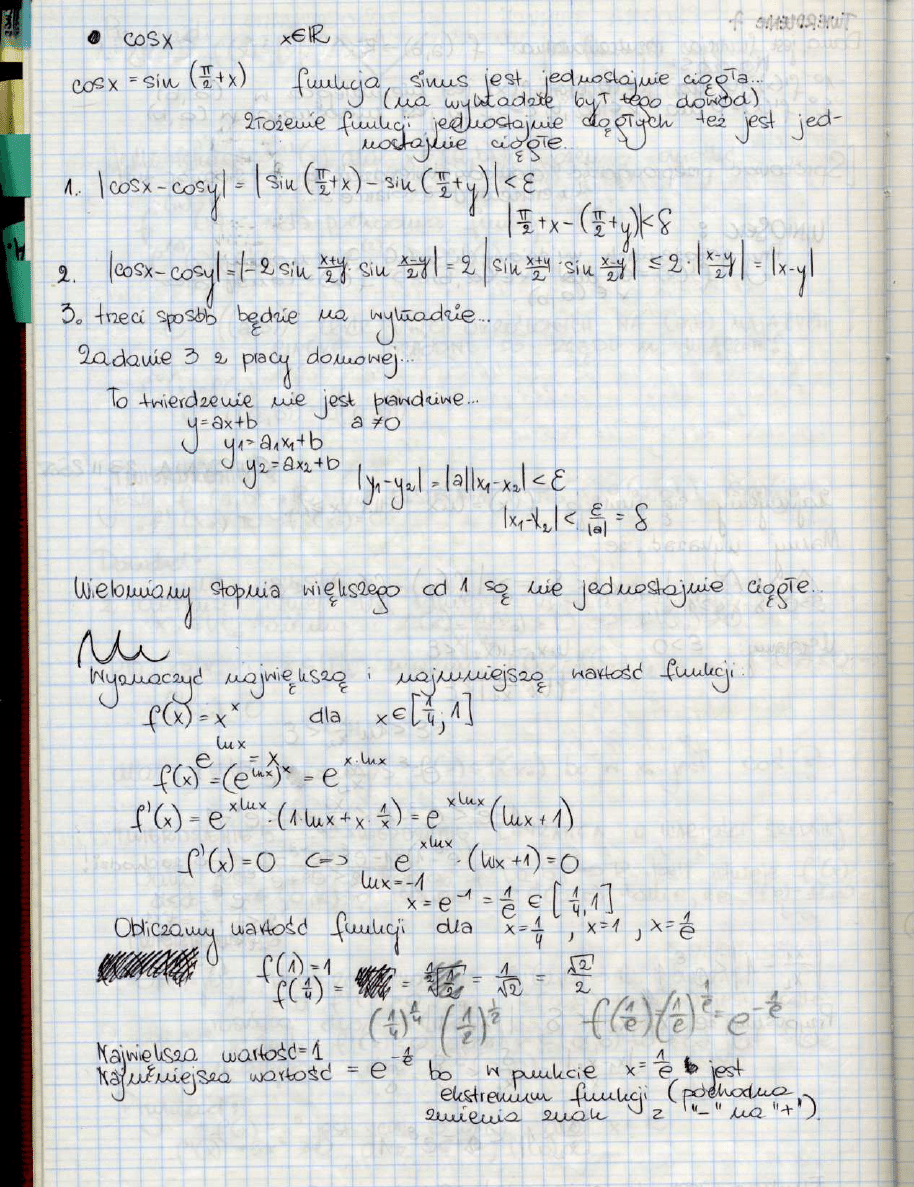 • cosx x∈ℝ
cosx = sin (π/2 + x) funkcja sinus jest jednostajnie ciągła...
(na wykładzie był tego dowód)
Złożenie funkcji jednostajnie ciągłych też jest jed-
nostajnie ciągłe.
1. |cosx - cosy| = |sin (π/2 + x) - sin (π/2 + y)| < ε
|π/2 + x - (π/2 + y)| < δ
2. |cosx - cosy| = |-2 sin (x+y)/2 · sin (x-y)/2| = 2 |sin (x+y)/2 · sin (x-y)/2| ≤ 2 · |(x-y)/2| = |x-y|
3. trzeci sposób będzie na wykładzie...
Zadanie 3 z pracy domowej...
To twierdzenie nie jest prawdziwe...
y = ax+b a ≠ 0
y₁ = a₁x₁+b
y₂ = ax₂+b
|y₁-y₂| = |a||x₁-x₂| < ε
|x₁-x₂| < ε/|a| = δ
Wielomiany stopnia większego od 1 są nie jednostajnie ciągłe..
Wyznaczyć największą i najmniejszą wartość funkcji.
f(x) = x^x dla x∈[1/4, 1]
e^lnx = x
f(x) = (e^lnx)^x = e^x·lnx
f'(x) = e^xlnx · (1·lnx + x · 1/x) = e^xlnx (lnx + 1)
f'(x) = 0 <=> e^xlnx · (lnx + 1) = 0
lnx = -1
x = e^-1 = 1/e ∈ [1/4, 1]
Obliczamy wartość funkcji dla x = 1/4, x = 1, x = 1/e
f(1) = 1
f(1/4) = = = 1/√2 = √2/2
(1/4)^1/4 (1/2)^1/2 f(1/e) = (1/e)^1/e = e^-1/e
Największa wartość = 1
Najmniejsza wartość = e^-1/e bo w punkcie x = 1/e jest
ekstremum funkcji (pochodna
zmienia znak z "-" na "+").